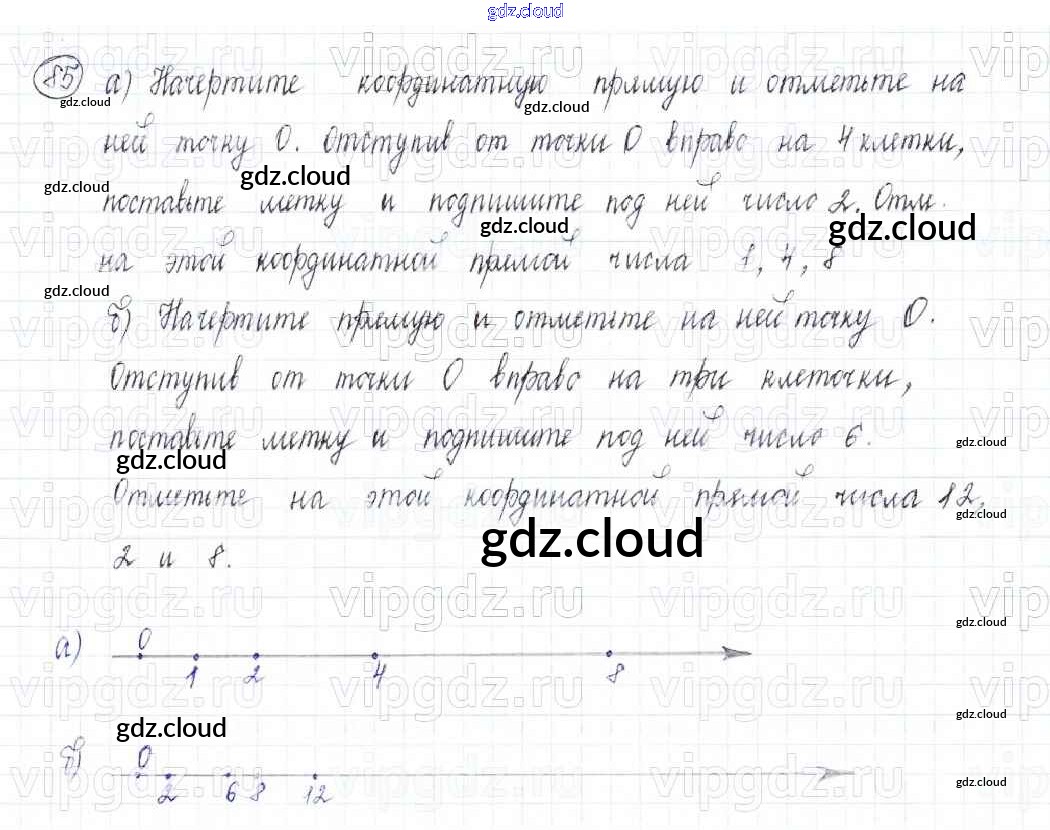 gdz.cloud
85 а) Начертите координатную прямую и отметьте на
ней точку О. Отступив от точки О вправо на 4 клетки,
поставьте метку и подпишите под ней число 2. Отм.
на этой координатной прямой числа 1, 4, 8
б) Начертите прямую и отметьте на ней точку О.
Отступив от точки О вправо на три клеточки,
поставьте метку и подпишите под ней число 6.
Отметьте на этой координатной прямой числа 12,
2 и 8.
а) 0 1 2 4 8
б) 0 2 6 8 12
gdz.cloud
vipgdz.ru